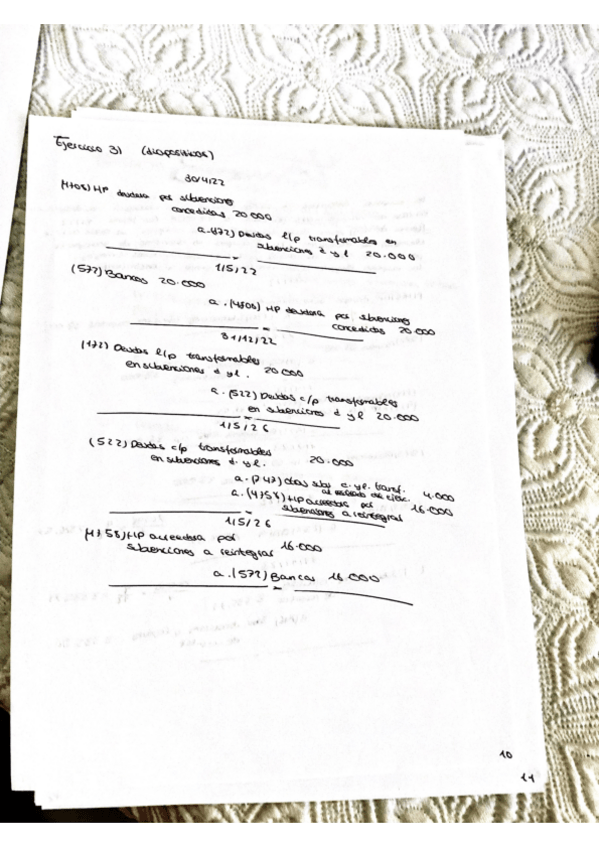 Ejercicio 3) (diapositivas)
30/4/22
(4708) HP deudora por subvenciones
concedidas 20.000
a.(172) Deudas l/p transformables en
subvenciones d y l 20.000
1/5/22
(572) Bancos 20.000
a.(4708) HP deudora por subvenciones
concedidas 20.000
31/12/22
(172) Deudas l/p transformables
en subvenciones d y l. 20.000
a.(522) Deudas c/p transformables
en subvenciones d y l 20.000
1/5/26
(522) Deudas c/p transformables
en subvenciones d. y l. 20.000
a.(747) otras sbv d. y l. transf.
al resultado del ejerc. 4.000
a.(4758) HP acreedora por
subvenciones a reintegrar 16.000
1/5/26
(4758) HP acreedora por
subvenciones a reintegrar 16.000
a.(572) Bancos 16.000
10
11